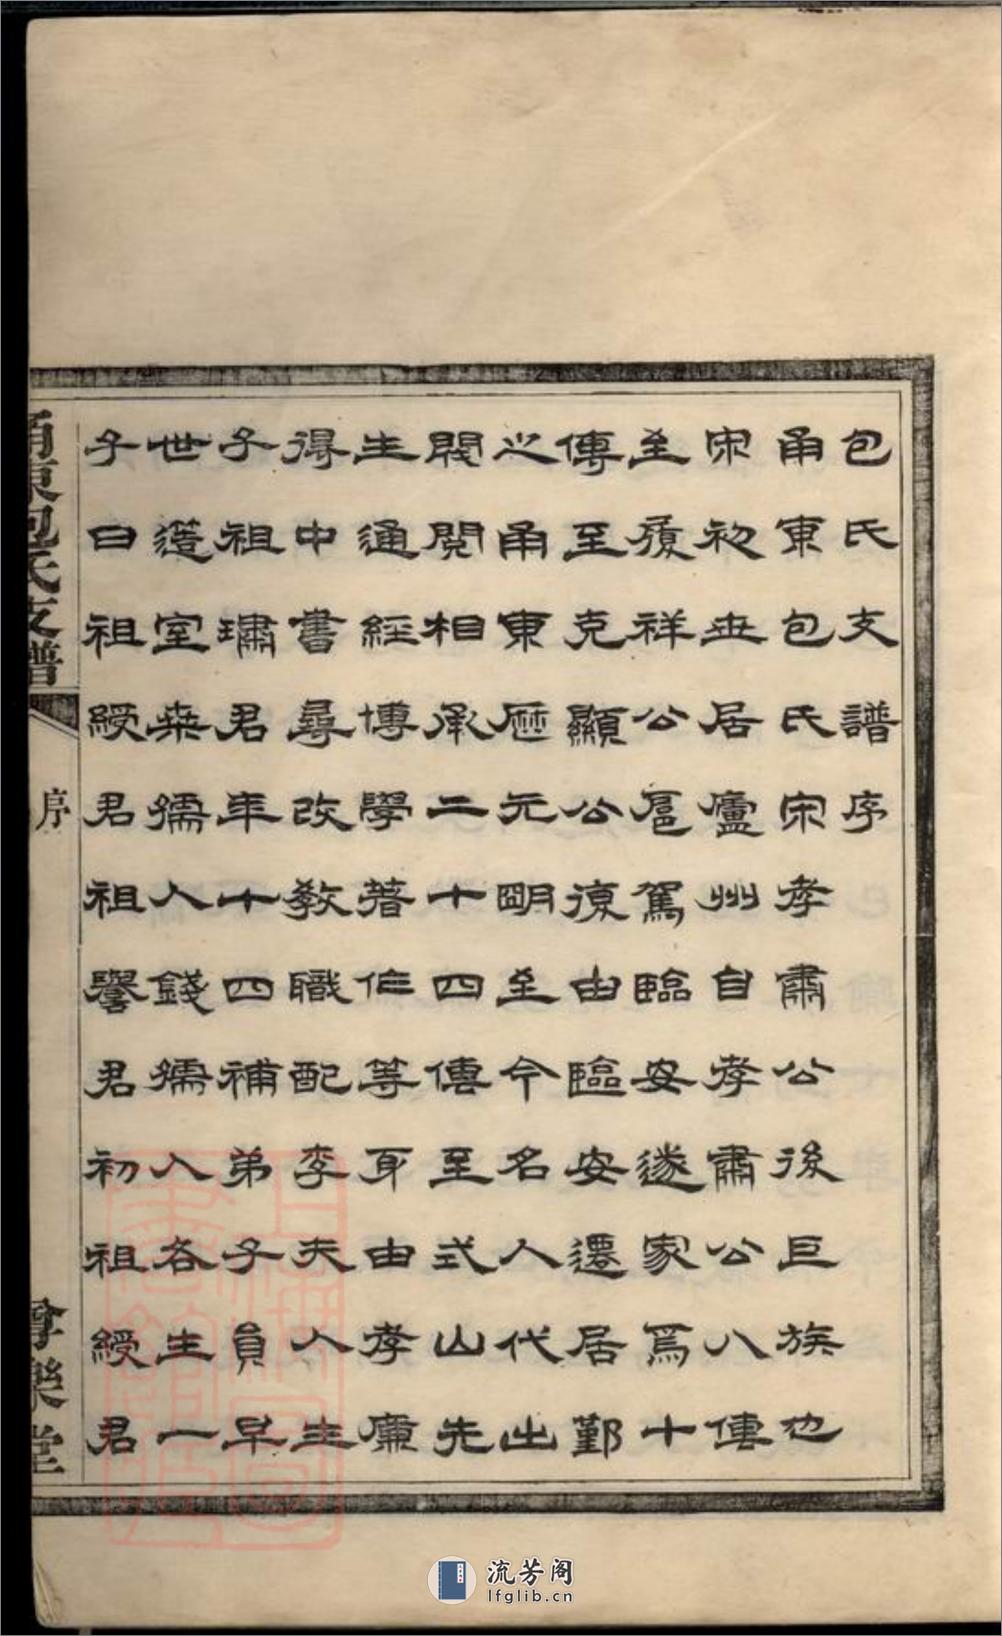 包氏支譜序
甬東包氏宋孝肅公後巨族也
宋初世居廬州自孝肅公八傳
至履祥公扈駕臨安遂家焉十
傳至克顯公復由臨安遷居鄞
之甬東歷元明至今名人代出
閥閱相承二十四傳至式山先
生通經博學著作等身由孝廉
得中書尋改教職配李夫人生
子祖璛君年十四補弟子員早
世造室桒孺人錢孺人各生一
子曰祖綬君祖譽君初祖綬君
甬東包氏支譜
序
樂堂
上海圖書館藏
流芳阁
lfglib.cn